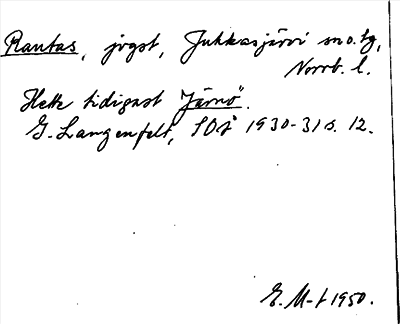 Rautas, jvgst, Jukkasjärvi sn o. tg,
Norrb. l.
Hette tidigast Järnö.
G. Langenfelt, SOÅ 1930-31 s. 12.
E. M-t 1950.